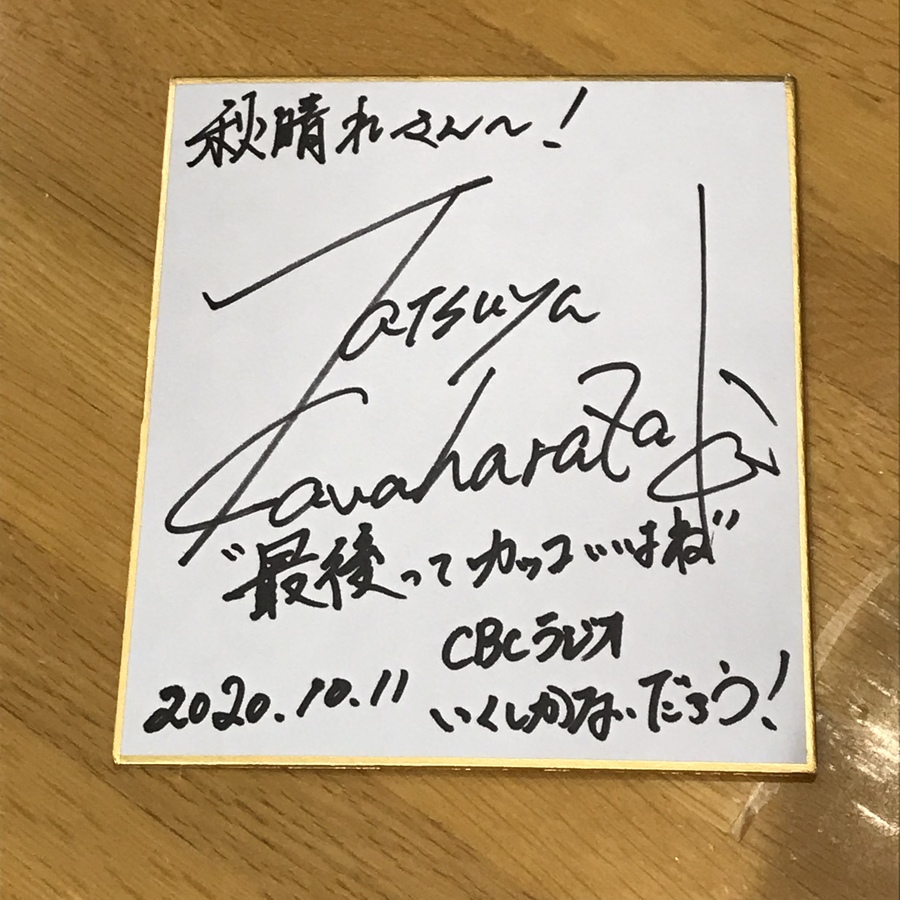 秋晴れさん〜!
Tatsuya
Kawaharazaki
"最後ってカッコいいはね"
CBCラジオ
2020.10.11 いくしかないだろう!